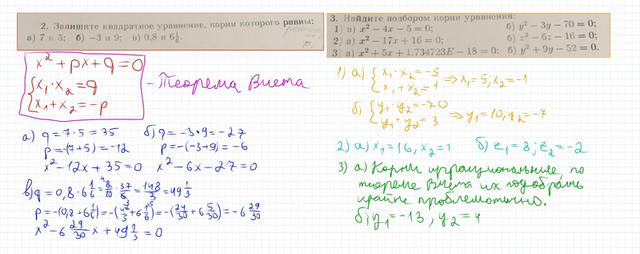 2. Запишите квадратное уравнение, корни которого равны:
а) 7 и 5; б) -3 и 9; в) 0,8 и 6⅙.
x² + px + q = 0
{x₁·x₂ = q
{x₁+x₂ = -p
- Теорема Виета
а) q = 7·5 = 35
p = -(7+5) = -12
x² - 12x + 35 = 0
б) q = -3·9 = -27
p = -(-3+9) = -6
x² - 6x - 27 = 0
x² - 6 29/30 x + 49 1/3 = 0
3. Найдите подбором корни уравнения:
1) а) x² - 4x - 5 = 0; б) y² - 3y - 70 = 0;
2) а) x² - 17x + 16 = 0; б) z² - 6z - 16 = 0;
3) а) x² + 5x + 1.734723E - 18 = 0; б) y² + 9y - 52 = 0.
1) а) {x₁·x₂ = -5
{x₁+x₂ = 4 ⇒ x₁ = 5; x₂ = -1
б) {y₁·y₂ = -70
{y₁·y₂ = 3 ⇒ y₁ = 10, y₂ = -7
2) а) x₁ = 16, x₂ = 1 б) z₁ = 8; z₂ = -2
3) а) Корни иррациональные, по
теореме Виета их подобрать
крайне проблематично.
б) y₁ = -13, y₂ = 4